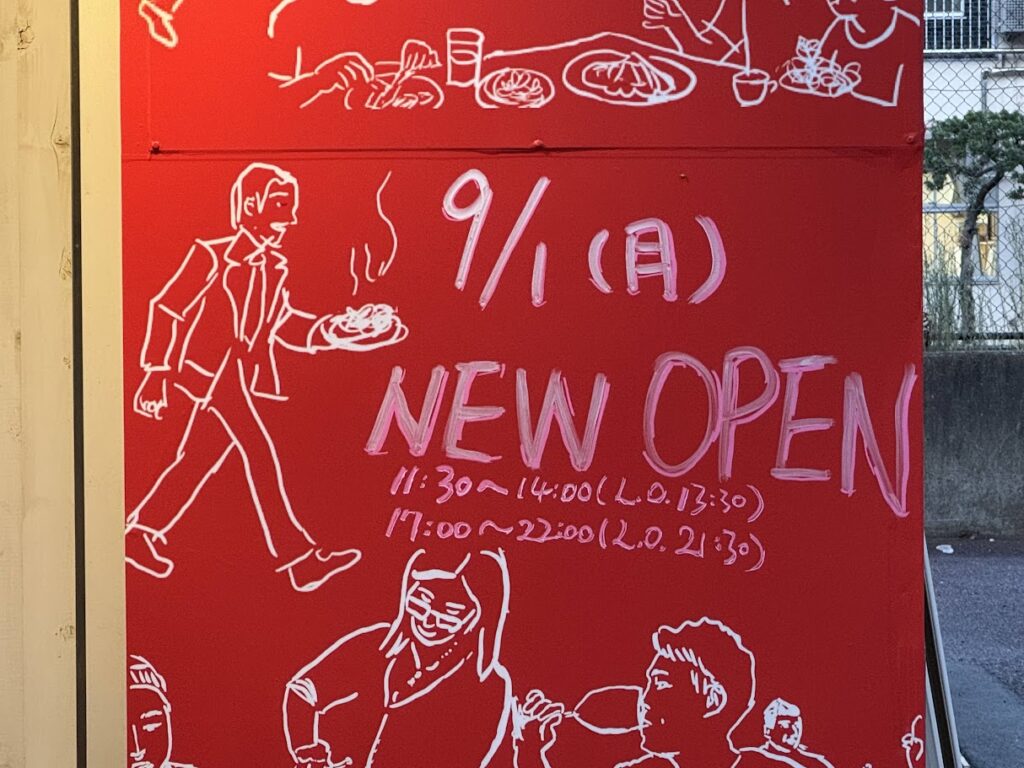 9/1(月)
NEW OPEN
11:30~14:00(L.O.13:30)
17:00~22:00(L.O.21:30)